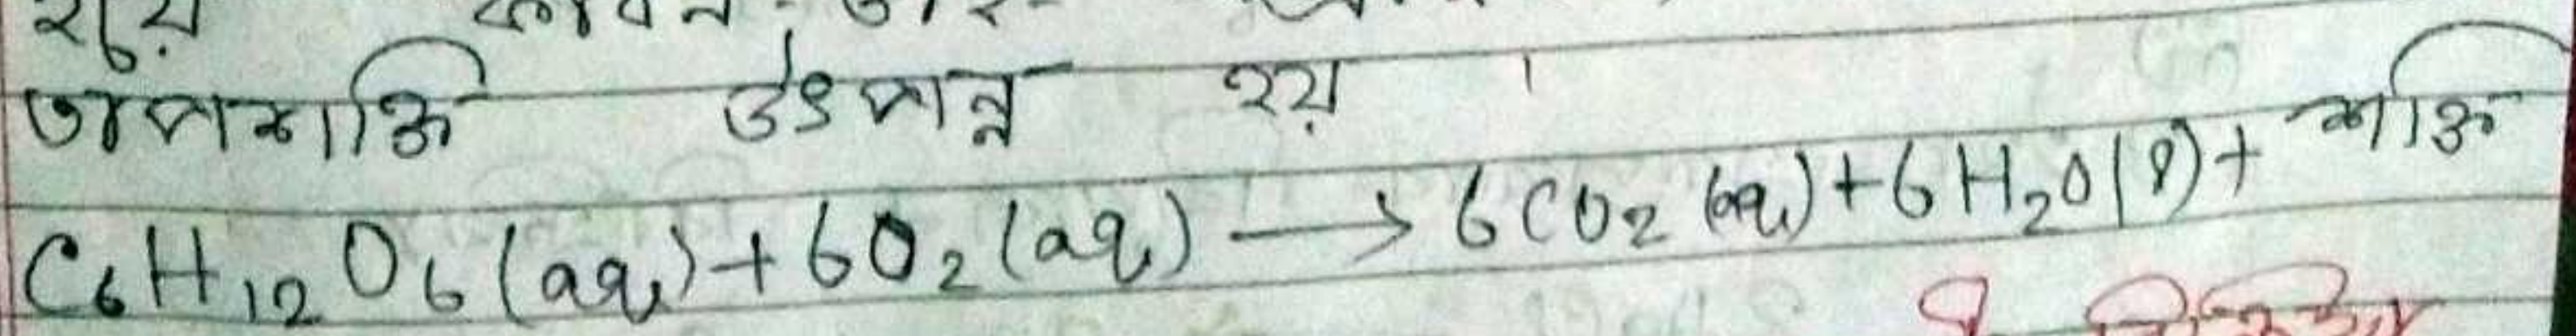 হয়
তাপশক্তি উৎপন্ন হয় ।
C₆H₁₂O₆(aq) + 6O₂(aq) → 6CO₂(aq) + 6H₂O(l) + শক্তি